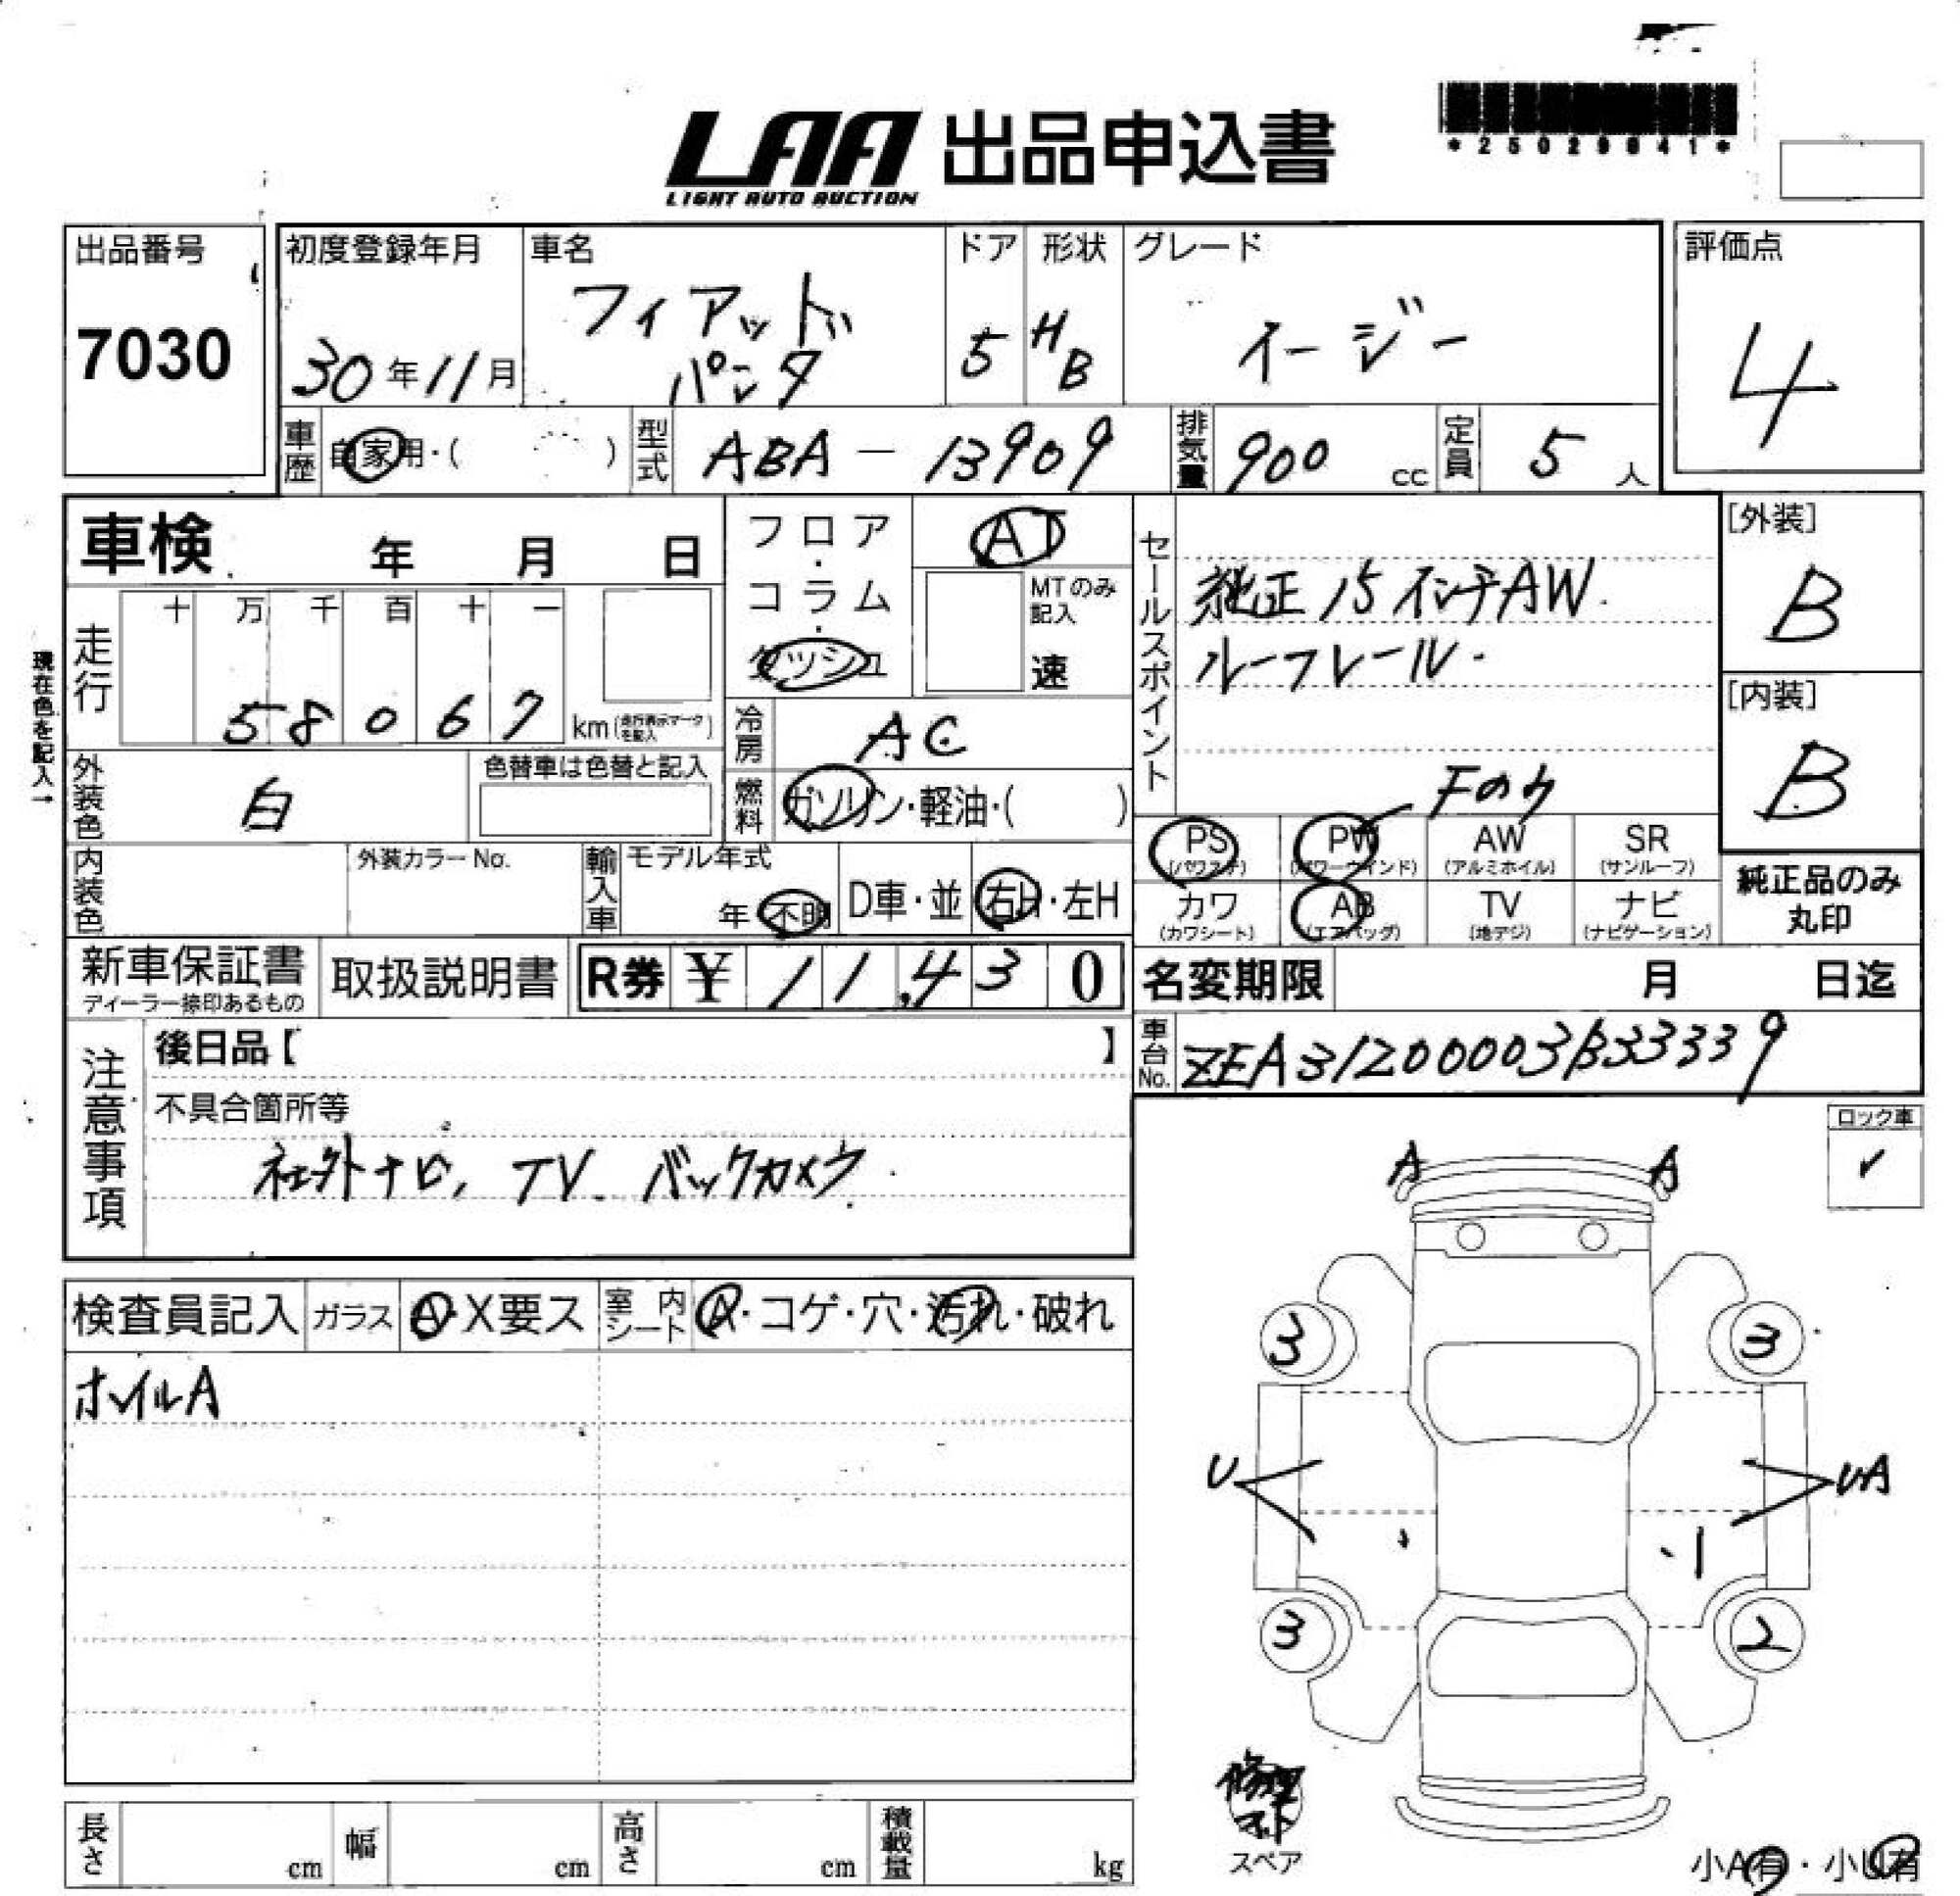 LAA 出品申込書
LIGHT AUTO AUCTION
*25029041*
出品番号
7030
初度登録年月
30年11月
車名
フィアット
パンダ
ドア
5
形状
HB
グレード
イージー
評価点
4
車歴
自家用・( )
型式
ABA-13909
排気量
900 cc
定員
5 人
車検 年 月 日
走行
十 万 千 百 十 一
5 8 0 6 7 km(走行表示マークを記入)
現在色を記入→
外装色
白
色替車は色替と記入
内装色
外装カラーNo.
フロア・コラム・ダッシュ
AT
MTのみ記入
速
冷房
AC
燃料
ガソリン・軽油・( )
輸入車
モデル年式
年 不明
D車・並
右H・左H
セールスポイント
純正15インチAW.
ルーフレール.
Fのみ
PS (パワステ)
PW (パワーウインド)
AW (アルミホイル)
SR (サンルーフ)
カワ (カワシート)
AB (エアバッグ)
TV (地デジ)
ナビ (ナビゲーション)
[外装]
B
[内装]
B
純正品のみ
丸印
新車保証書
ディーラー捺印あるもの
取扱説明書
R券 ¥ 11,430
名変期限 月 日迄
車台No.
ZFA31200003B33339
注意事項
後日品【 】
不具合箇所等
社外ナビ, TV. バックカメラ.
ロック車
✓
検査員記入
ガラス
A・X要ス
室内シート
A・コゲ・穴・汚れ・破れ
ホイルA
A A
3 3
U UA
3 2
修理
スペア
小A有・小U有
長さ cm
幅 cm
高さ cm
積載量 kg